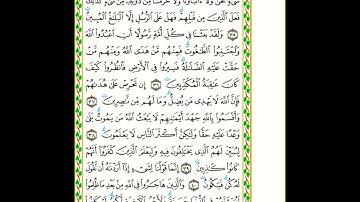 شىء نحن ولا ءاباؤنا ولا حرمنا من دونه من شىء كذلك
فعل الذين من قبلهم فهل على الرسل إلا البلغ المبين
٣٥ ولقد بعثنا فى كل أمة رسولا أن اعبدوا الله
واجتنبوا الطغوت فمنهم من هدى الله ومنهم من
حقت عليه الضللة فسيروا فى الأرض فانظروا كيف
كان عقبة المكذبين ٣٦ إن تحرص على هدىهم
فإن الله لا يهدى من يضل وما لهم من نصرين ٣٧
وأقسموا بالله جهد أيمنهم لا يبعث الله من يموت بلى
وعدا عليه حقا ولكن أكثر الناس لا يعلمون ٣٨
ليبين لهم الذى يختلفون فيه وليعلم الذين كفروا أنهم
كانوا كذبين ٣٩ إنما قولنا لشىء إذا أردنه أن نقول
له كن فيكون ٤٠ والذين هاجروا فى الله من بعد ما ظلموا